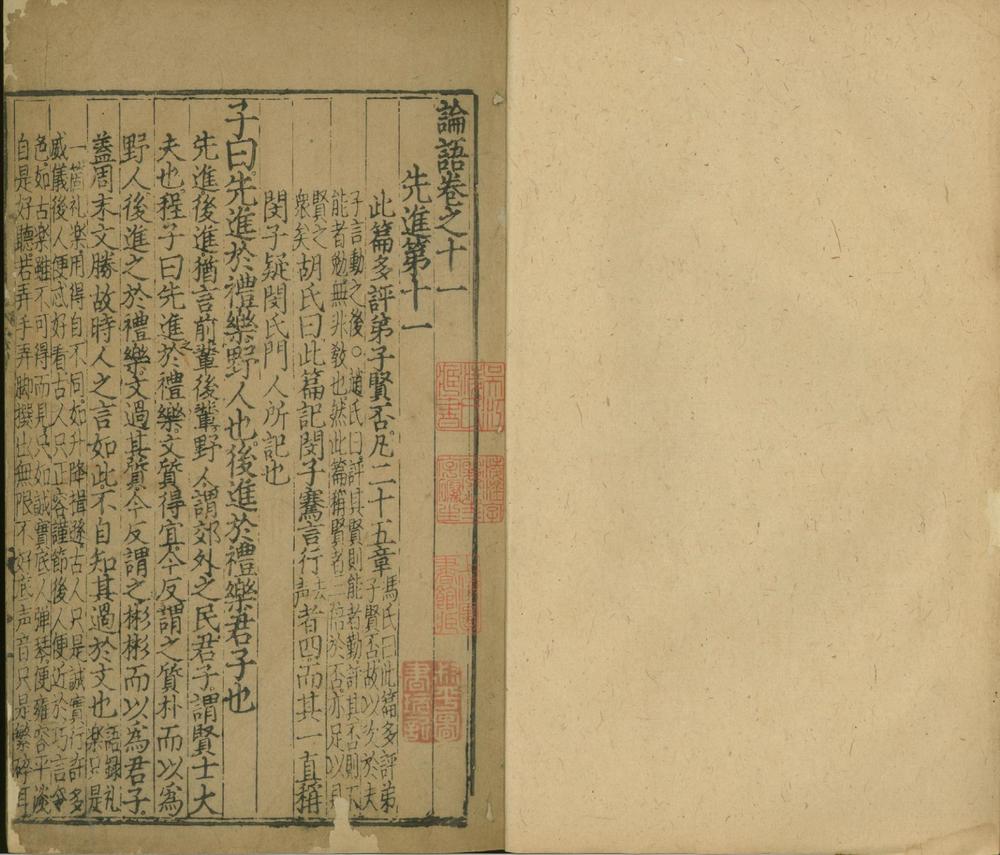 論語卷之十一
先進第十一
此篇多評弟子賢否凡二十五章
馮氏曰此篇多評弟
子賢否故以次於夫
子言動之後○趙氏曰評其賢則能者勸評其否則不
能者勉無非教也然此篇稱賢者二倍於否亦足以見
賢之
衆矣
胡氏曰此篇記閔子騫言行
去
声
者四而其一直稱
閔子疑閔氏門人所記也
子曰先進於禮樂野人也後進於禮樂君子也
先進後進猶言前輩後輩野人謂郊外之民君子謂賢士大
夫也程子曰先進於禮樂文質得宜今反謂之質朴而以爲
野人後進之於禮樂文過其質今反謂之彬彬而以爲君子
蓋周末文勝故時人之言如此不自知其過於文也
語錄礼
樂只是
一箇礼樂用得自不同如升降揖遜古人只是誠實行許多
威儀後人便忒好看古人只正容謹節後人便近於巧言令
色如古樂雖不可得而見只如誠實底人彈琴便雍容平淡
自是好聽若弄手弄脚撰出無限不好底声音只是繁碎耳